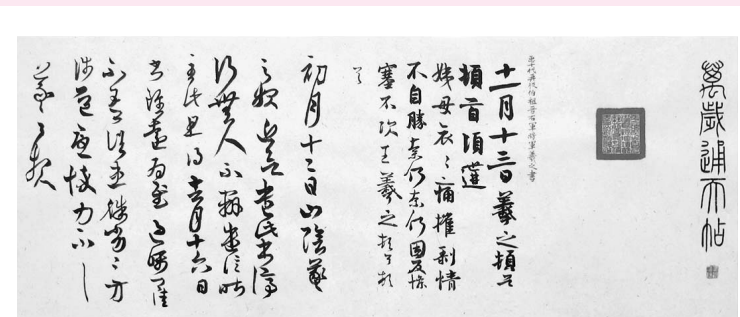 萬歲通天帖
臣十代再從伯祖晉右軍將軍羲之書
十一月十三日羲之頓首
頓首頃遘
姨母哀〻痛摧剝情
不自勝奈何奈何因反慘
塞不次王羲之頓首頓
首
初月十二日山陰羲
之報近欲遣此書停
行無人不辦遣信昨
至此且得去月十六日
書雖遠為慰過囑卿
佳不吾諸患殊劣〻方
涉道憂悴力不一一
羲之報